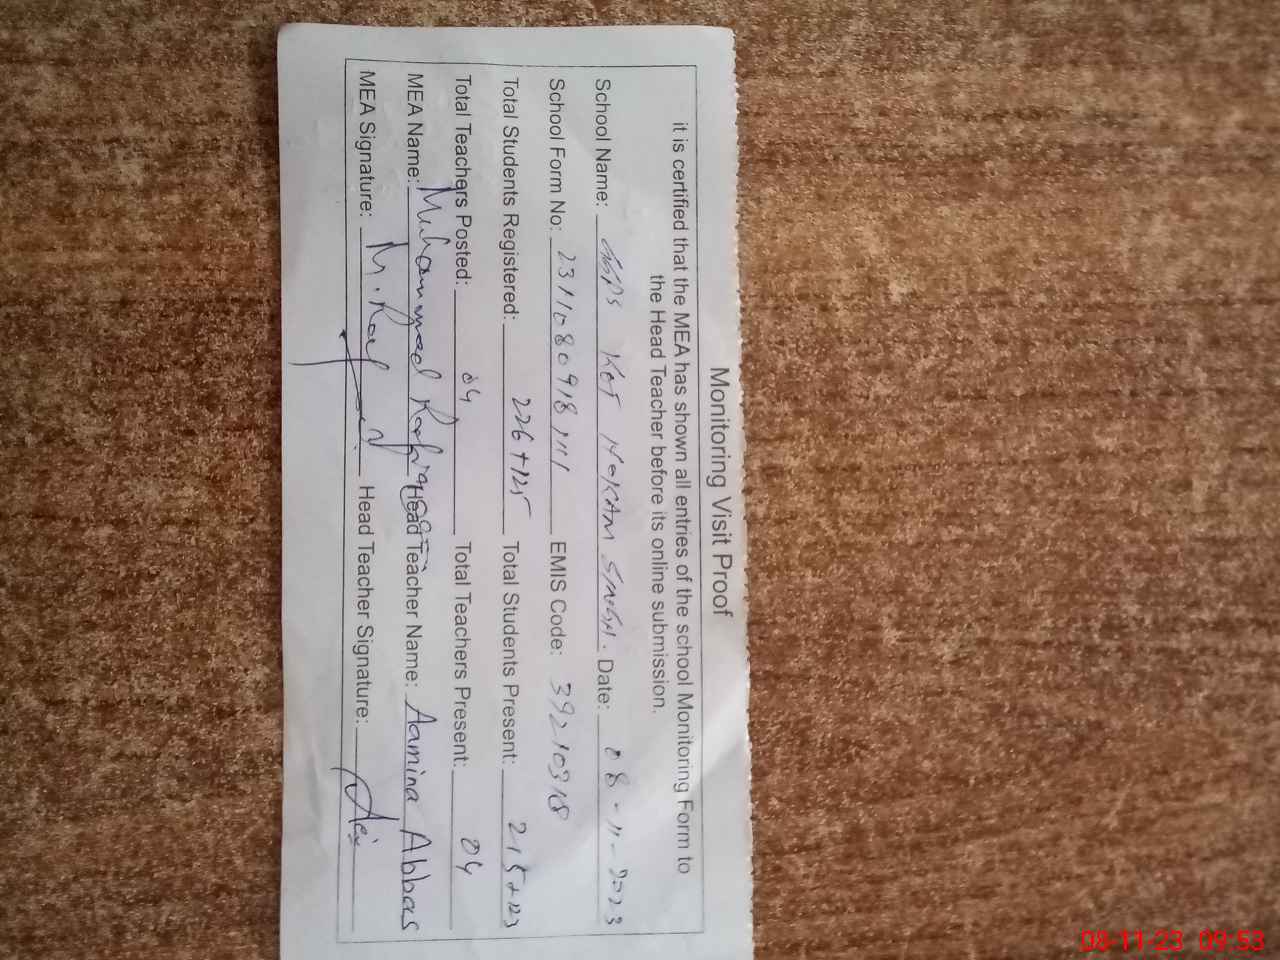 Monitoring Visit Proof
it is certified that the MEA has shown all entries of the school Monitoring Form to
the Head Teacher before its online submission.
School Name: GGPS KOT HOKAM SINGH. Date: 08-11-2023
School Form No: 2311080918111 EMIS Code: 39210318
Total Students Registered: 226+125 Total Students Present: 215+123
Total Teachers Posted: 04 Total Teachers Present: 04
MEA Name: Muhammad Head Teacher Name: Aamina Abbas
MEA Signature: Head Teacher Signature:
08-11-23 09:53